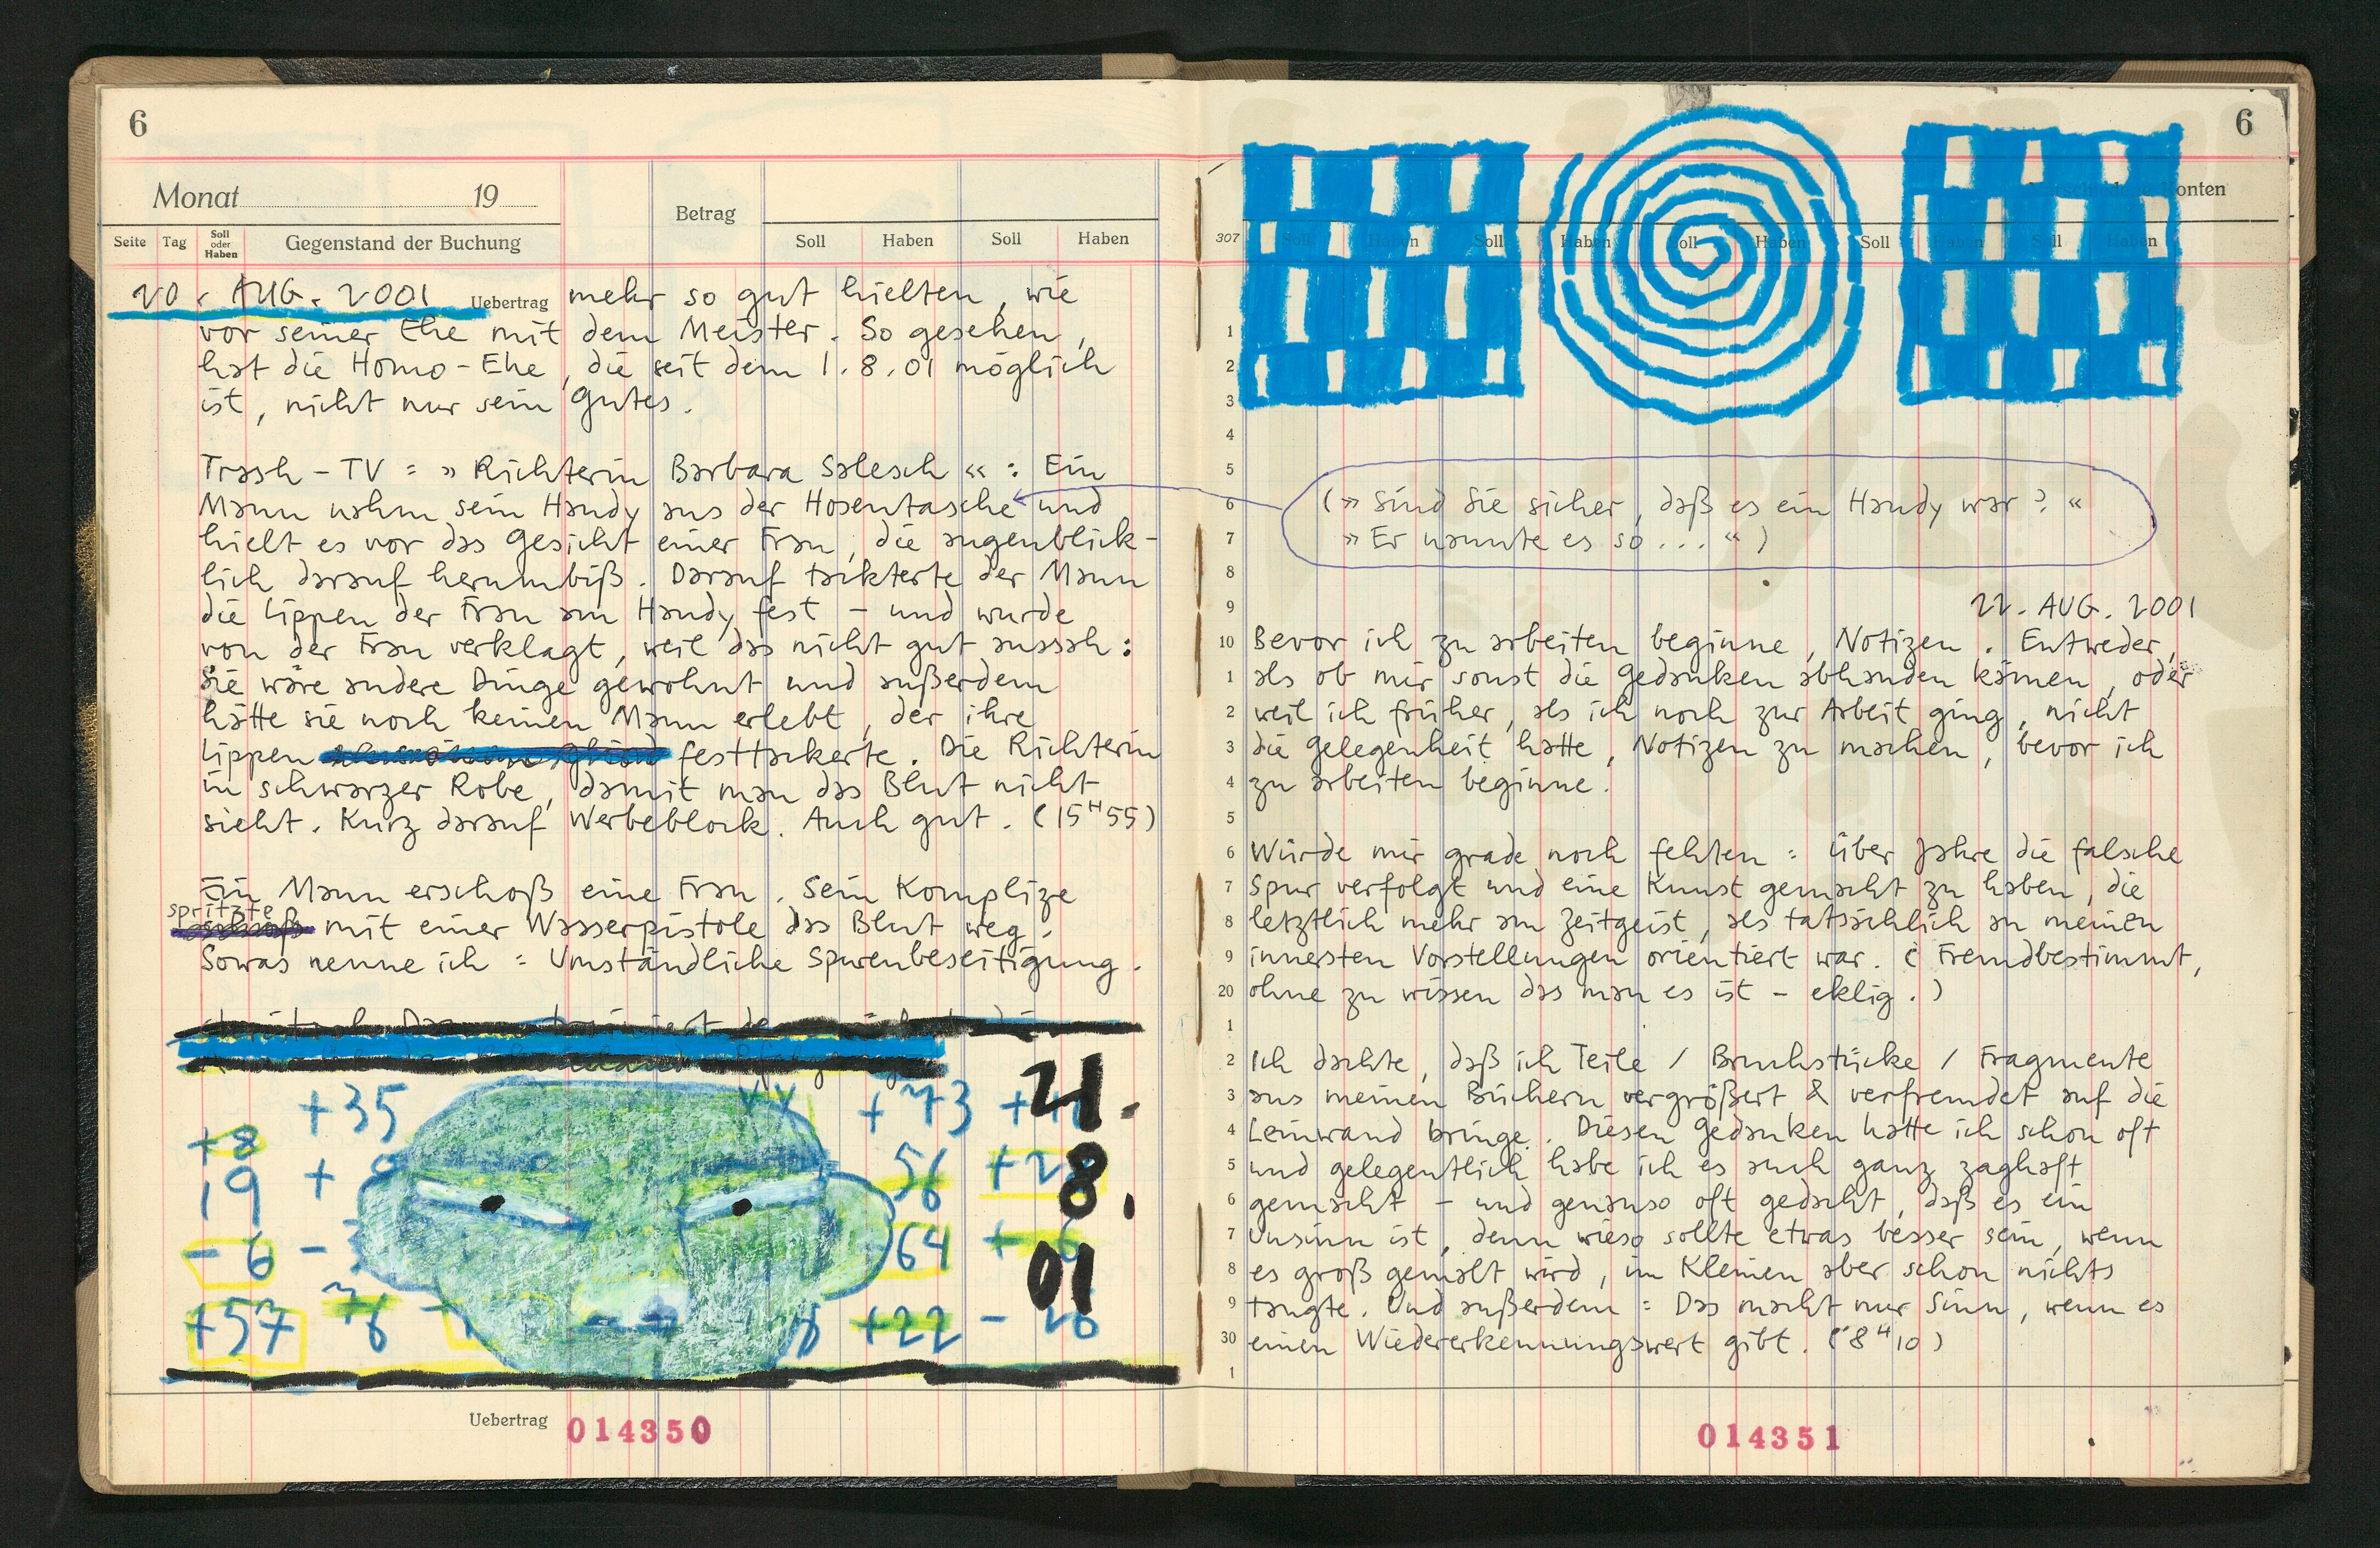 6
Monat 19
Betrag
Seite Tag Soll oder Haben Gegenstand der Buchung Soll Haben Soll Haben
20. AUG. 2001 Uebertrag mehr so gut hielten, wie
vor seiner Ehe mit dem Meister. So gesehen,
hat die Homo-Ehe, die seit dem 1.8.01 möglich
ist, nicht nur sein Gutes.
Trash-TV: »Richterin Barbara Salesch«: Ein
Mann nahm sein Handy aus der Hosentasche und
hielt es vor das Gesicht einer Frau, die augenblick-
lich darauf herumbiß. Darauf tackterte der Mann
die Lippen der Frau am Handy fest - und wurde
von der Frau verklagt, weil das nicht gut aussah:
Sie wäre andere Dinge gewohnt und außerdem
hätte sie noch keinen Mann erlebt, der ihre
Lippen festtackerte. Die Richterin
in schwarzer Robe, damit man das Blut nicht
sieht. Kurz darauf Werbeblock. Auch gut. (15H55)
Ein Mann erschoß eine Frau. Sein Komplize
spritzte
schoß mit einer Wasserpistole das Blut weg.
Sowas nenne ich: Umständliche Spurenbeseitigung.
+35 +73 21.
+8
19 + 56 +2 8.
-6 - 64 +6 01
+57 76 - +22 - 26
Uebertrag 014350
6
Konten
307 Soll Haben Soll Haben Soll Haben Soll Haben Soll Haben
1
2
3
4
5
6 (»Sind Sie sicher, daß es ein Handy war?«
7 »Er nannte es so...«)
8
9 22. AUG. 2001
10 Bevor ich zu arbeiten beginne, Notizen. Entweder,
1 als ob mir sonst die Gedanken abhanden kämen, oder
2 weil ich früher, als ich noch zur Arbeit ging, nicht
3 die Gelegenheit hatte, Notizen zu machen, bevor ich
4 zu arbeiten beginne.
5
6 Würde mir grade noch fehlen: Über Jahre die falsche
7 Spur verfolgt und eine Kunst gemacht zu haben, die
8 letztlich mehr am Zeitgeist, als tatsächlich an meinen
9 innersten Vorstellungen orientiert war. (Fremdbestimmt,
20 ohne zu wissen das man es ist - eklig.)
1
2 Ich dachte, daß ich Teile / Bruchstücke / Fragmente
3 aus meinen Büchern vergrößert & verfremdet auf die
4 Leinwand bringe. Diesen Gedanken hatte ich schon oft
5 und gelegentlich habe ich es auch ganz zaghaft
6 gemacht - und genauso oft gedacht, daß es ein
7 Unsinn ist, denn wieso sollte etwas besser sein, wenn
8 es groß gemalt wird, im Kleinen aber schon nichts
9 taugte. Und außerdem: Das macht nur Sinn, wenn es
30 einen Wiedererkennungswert gibt. (8H10)
1
014351